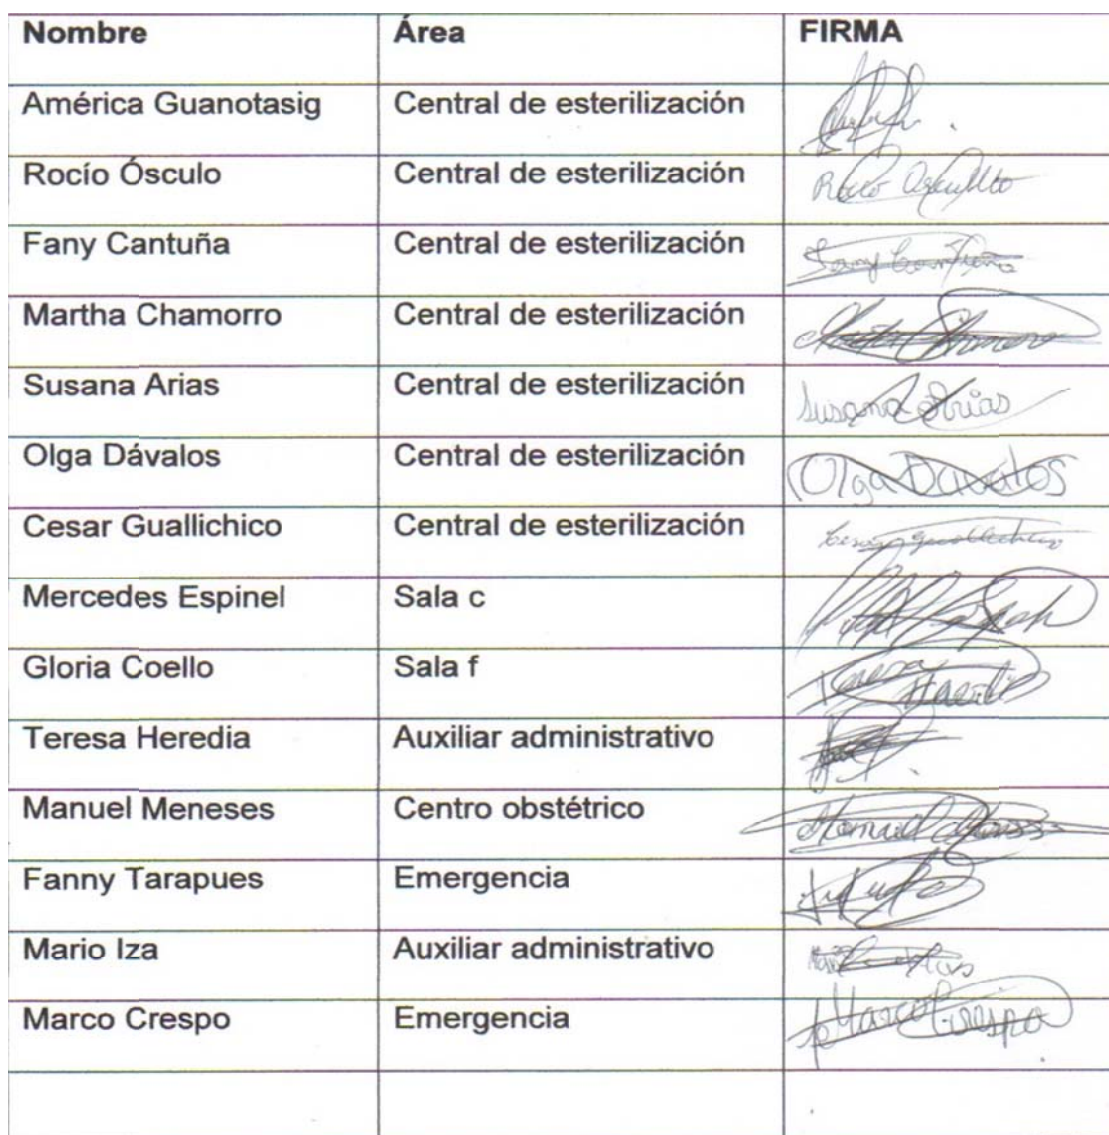 Nombre Área FIRMA
América Guanotasig Central de esterilización
Rocío Ósculo Central de esterilización Rocío
Fany Cantuña Central de esterilización Fany Cantuña
Martha Chamorro Central de esterilización
Susana Arias Central de esterilización Susana Arias
Olga Dávalos Central de esterilización Olga Davalos
Cesar Guallichico Central de esterilización
Mercedes Espinel Sala c
Gloria Coello Sala f Teresa Heredia
Teresa Heredia Auxiliar administrativo
Manuel Meneses Centro obstétrico Manuel
Fanny Tarapues Emergencia
Mario Iza Auxiliar administrativo
Marco Crespo Emergencia Marco Crespo